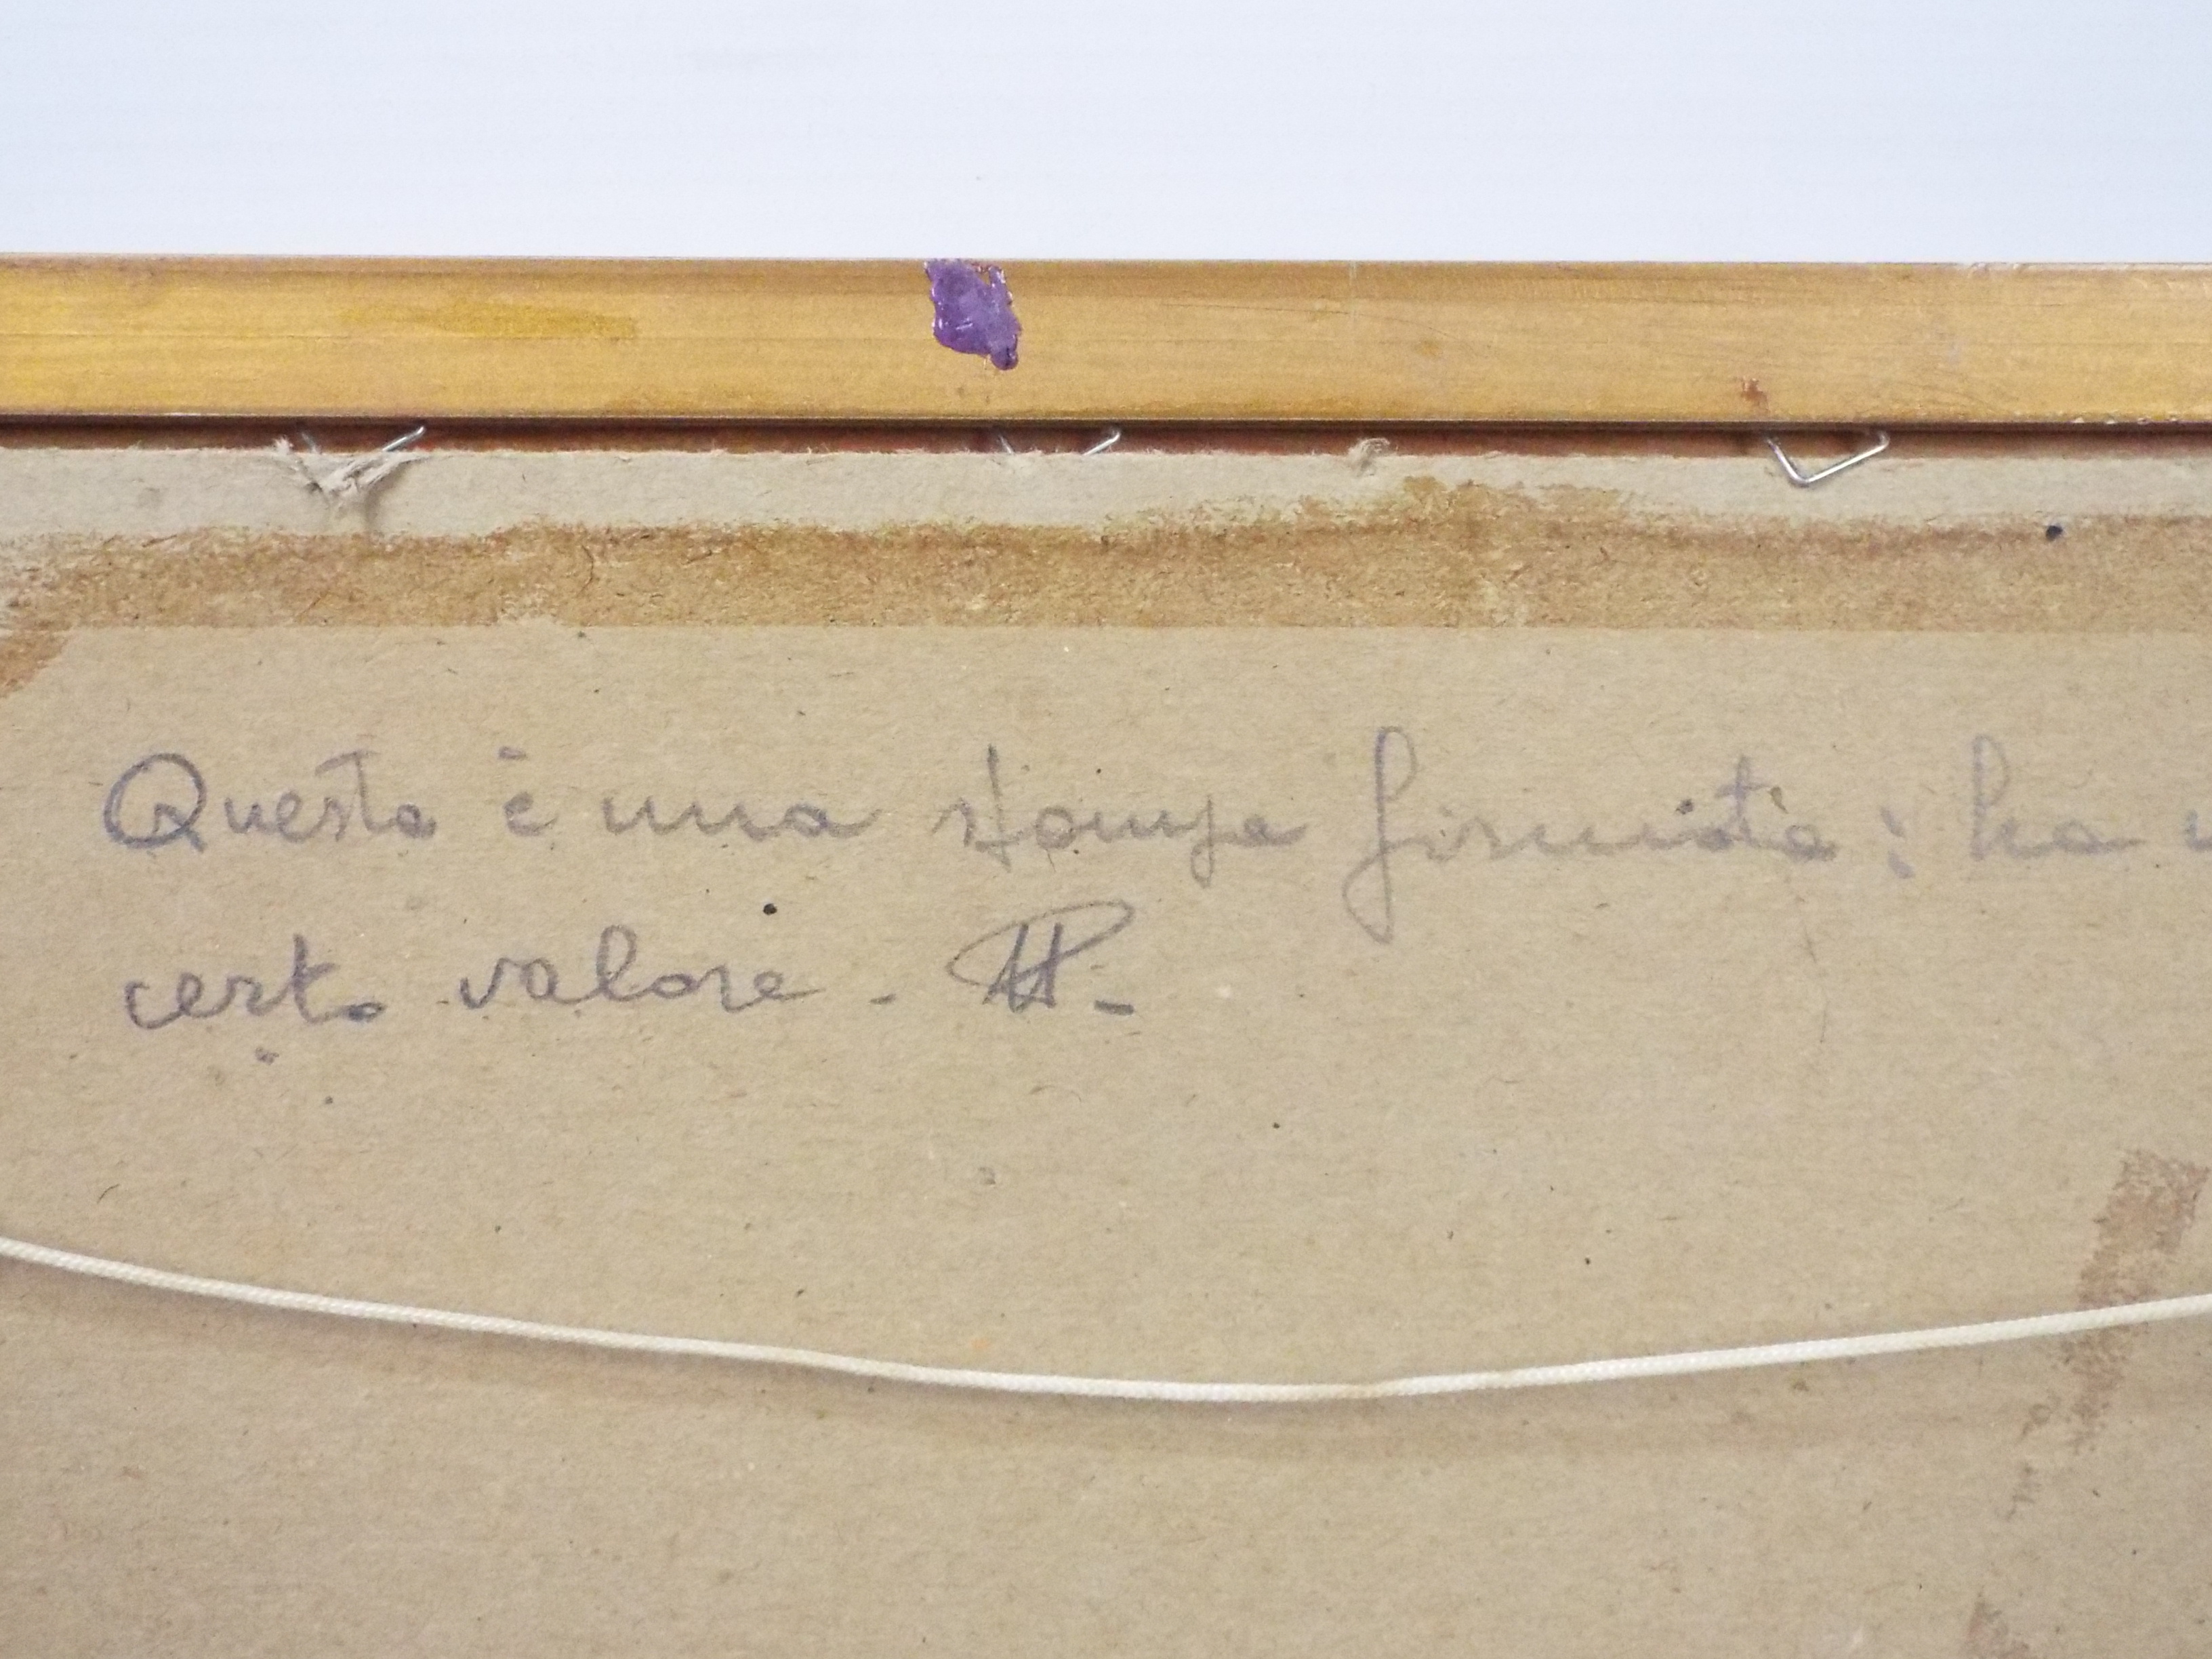 Questa è una stampa firmata: ha
certo valore.